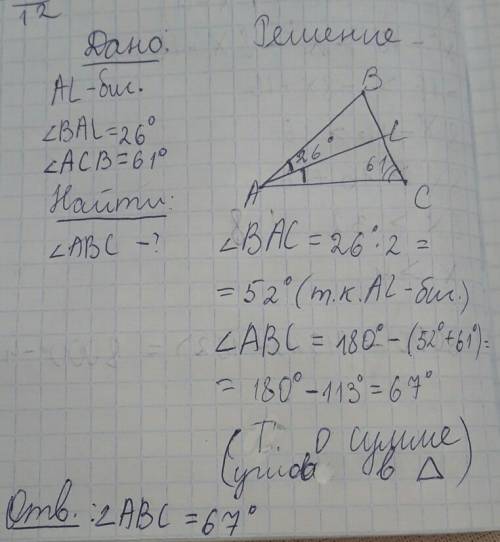 12
Дано: Решение
AL-бис.
∠BAL=26°
∠ACB=61°
Найти:
∠ABC -?
B
L
26°
61
A
C
∠BAC = 26°·2 =
= 52° (т.к. AL-бис.)
∠ABC = 180° - (52°+61°)=
= 180° - 113° = 67°
(Т. о сумме
углов в Δ)
Отв.: ∠ABC = 67°